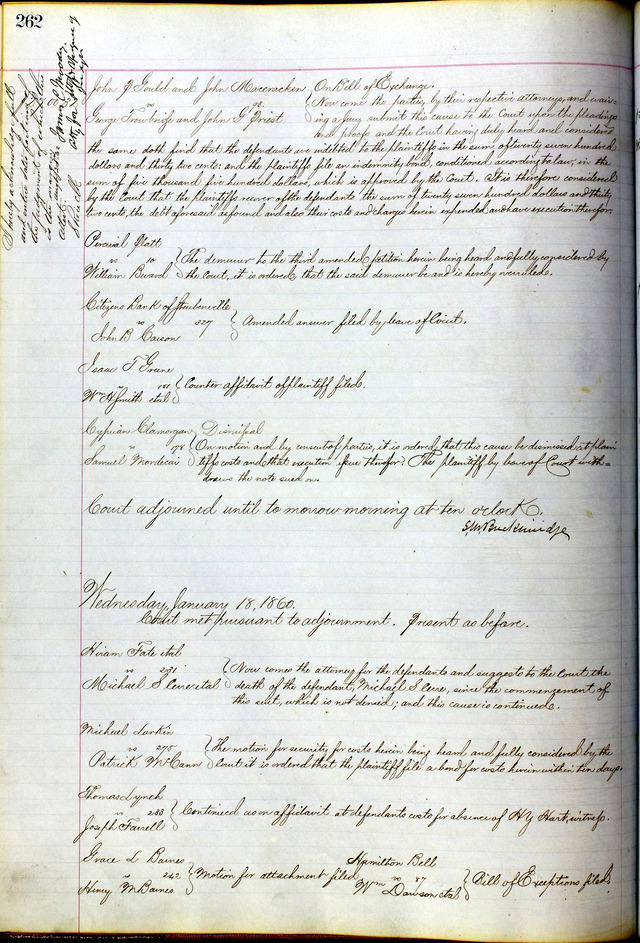 262
I hereby acknowledge full
and entire satisfaction of
the judgment
John J Gould and John Maccracken } On Bill of Exchange.
vs 98. Now come the parties, by their respective attorneys, and waiv-
George Trowbridge and John G Priest ing a jury submit this cause to the Court upon the pleadings
and proofs and the Court having duly heard and considered
the same doth find that the defendants are indebted to the plaintiffs in the sum of twenty seven hundred
dollars and thirty two cents: and the plaintiffs file an indemnity bond, conditioned according to law, in the
sum of five thousand five hundred dollars, which is approved by the Court. It is therefore considered
by the Court that the plaintiffs recover of the defendants the sum of twenty seven hundred dollars and thirty
two cents, the debt aforesaid as found and also their costs and charges herein expended and have execution therefor.
Percival Platt
vs 10 } The demurrer to the third amended petition herein being heard and fully considered by
William the Court, it is ordered, that the said demurrer be and is hereby overruled.
Citizens Bank of Steubenville
vs 327 } Amended answer filed by leave of Court.
John B Carson
Isaac T Greene
vs 151 } Counter affidavit of plaintiff filed.
Wm H Smith etal
Cyprian Clamorgan Dismissal
vs 78 } On motion and by consent of parties, it is ordered, that this cause be dismissed at plain
Samuel Mordecai tiffs costs and that execution issue therefor. The plaintiff by leave of Court with-
draws the note sued on.
Court adjourned until to morrow morning at ten o'clock.
S M Breckinridge
Wednesday, January 18, 1860.
Court met pursuant to adjournment. Present as before.
Hiram Tate etal
vs 231 } Now comes the attorney for the defendants and suggests to the Court the
Michael S Cerre etal death of the defendant, Michael S Cerre, since the commencement of
this suit, which is not denied; and this cause is continued.
Michael Larkin
vs 275 } The motion for security for costs herein being heard, and fully considered by the
Patrick McCann Court it is ordered that the plaintiff file a bond for costs herein within ten days.
Thomas Lynch
vs 233 } Continued as on affidavit at defendants costs for absence of H Y Hart, witness.
Joseph Farrell
Grace L Baines Hamilton Bell
vs 242 } Motion for attachment filed. vs 87 } Bill of Exceptions filed.
Henry M Baines Wm Dawson etal